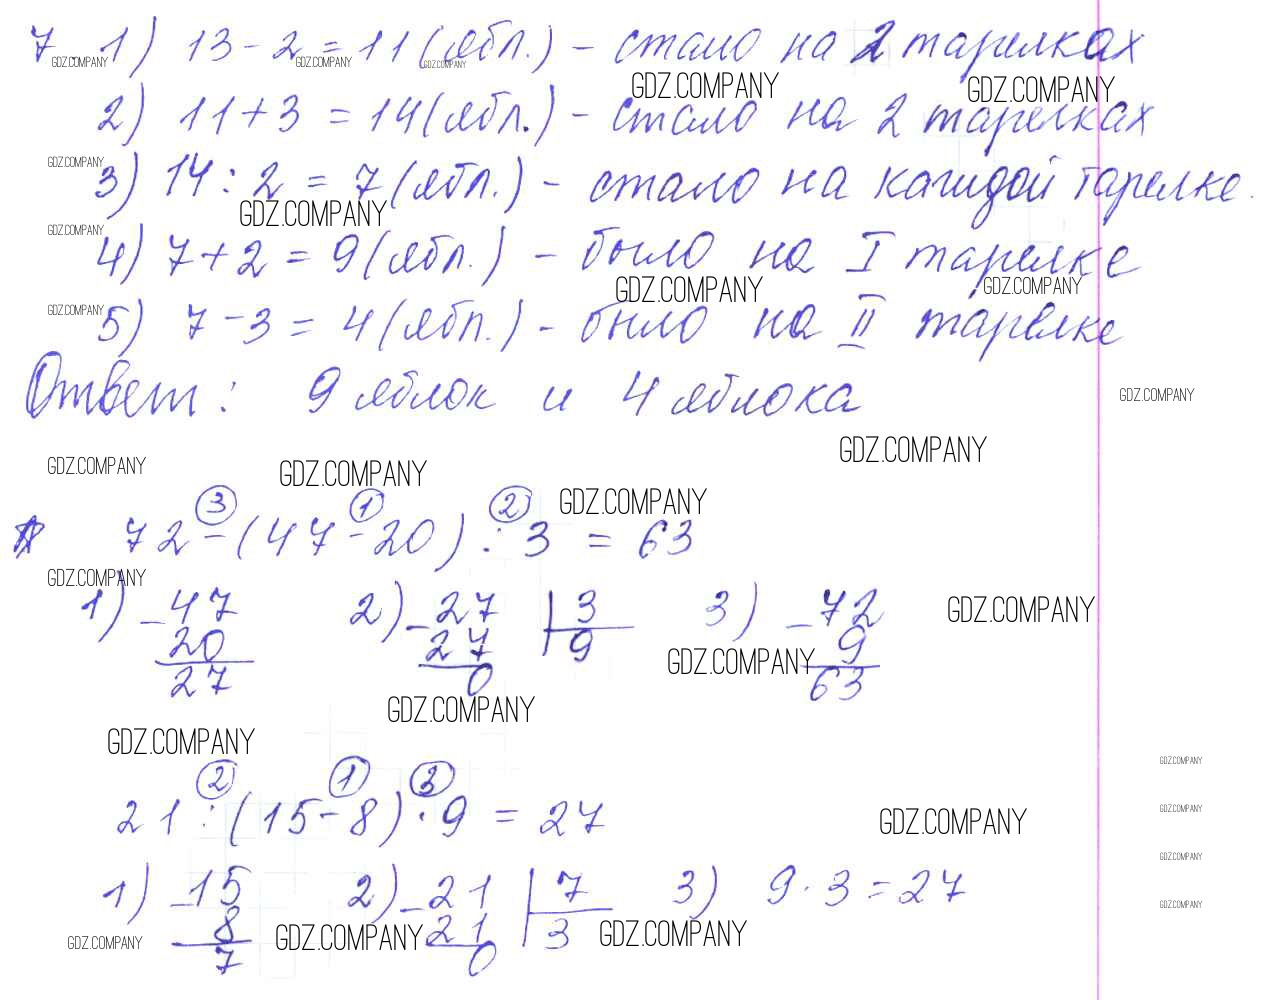 7. 1) 13 - 2 = 11 (ябл.) - стало на 2 тарелках
GDZ.COMPANY GDZ.COMPANY GDZ.COMPANY
GDZ.COMPANY GDZ.COMPANY
2) 11 + 3 = 14 (ябл.) - стало на 2 тарелках
GDZ.COMPANY
3) 14 : 2 = 7 (ябл.) - стало на каждой тарелке.
GDZ.COMPANY
GDZ.COMPANY
4) 7 + 2 = 9 (ябл.) - было на I тарелке
GDZ.COMPANY GDZ.COMPANY
GDZ.COMPANY
5) 7 - 3 = 4 (ябл.) - было на II тарелке
Ответ: 9 яблок и 4 яблока
GDZ.COMPANY
GDZ.COMPANY
GDZ.COMPANY GDZ.COMPANY
GDZ.COMPANY
3 1 2
72 - (47 - 20) : 3 = 63
GDZ.COMPANY
1) - 47 2) - 27 | 3 3) - 72
GDZ.COMPANY
20 27 9 9
GDZ.COMPANY
27 0 63
GDZ.COMPANY
GDZ.COMPANY
GDZ.COMPANY
2 1 3
21 : (15 - 8) · 9 = 27
GDZ.COMPANY
GDZ.COMPANY
GDZ.COMPANY
1) - 15 2) - 21 | 7 3) 9 · 3 = 27
GDZ.COMPANY
8 21 3
GDZ.COMPANY GDZ.COMPANY GDZ.COMPANY
7 0